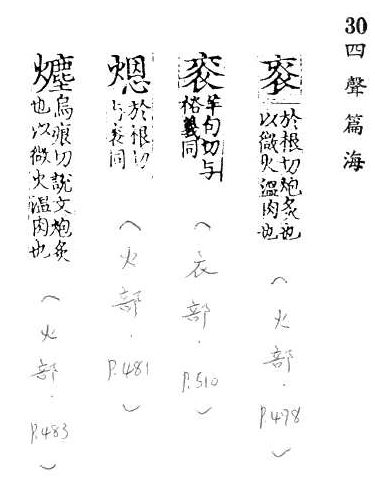 30 四聲篇海
於根切炮炙也
以微火溫肉也
（火部．P.478）
羊句切与
裕義同
（衣部．P.510）
煾
於根切
与同
（火部．P.481）
烏痕切說文炮炙
也以微火溫肉也
（火部．P.483）